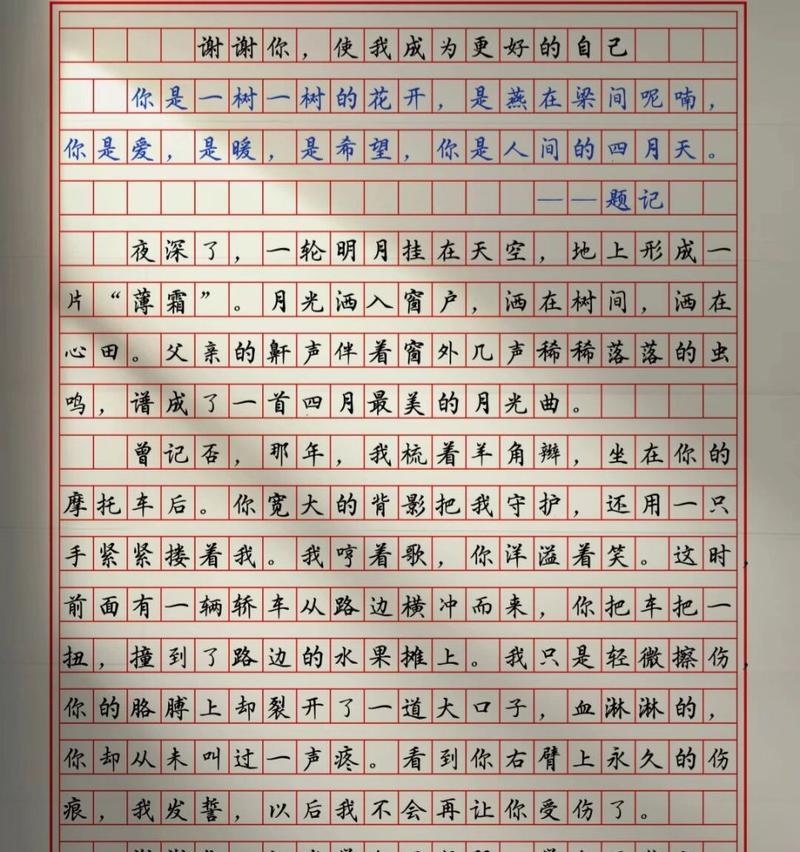 谢谢你，使我成为更好的自己
你是一树一树的花开，是燕在梁间呢喃，
你是爱，是暖，是希望，你是人间的四月天。
——题记
夜深了，一轮明月挂在天空，地上形成一
片“薄霜”。月光洒入窗户，洒在树间，洒在
心田。父亲的鼾声伴着窗外几声稀稀落落的虫
鸣，谱成了一首四月最美的月光曲。
曾记否，那年，我梳着羊角辫，坐在你的
摩托车后。你宽大的背影把我守护，还用一只
手紧紧搂着我。我哼着歌，你洋溢着笑。这时，
前面有一辆轿车从路边横冲而来，你把车把一
扭，撞到了路边的水果摊上。我只是轻微擦伤，
你的胳膊上却裂开了一道大口子，血淋淋的，
你却从未叫过一声疼。看到你右臂上永久的伤
痕，我发誓，以后我不会再让你受伤了。